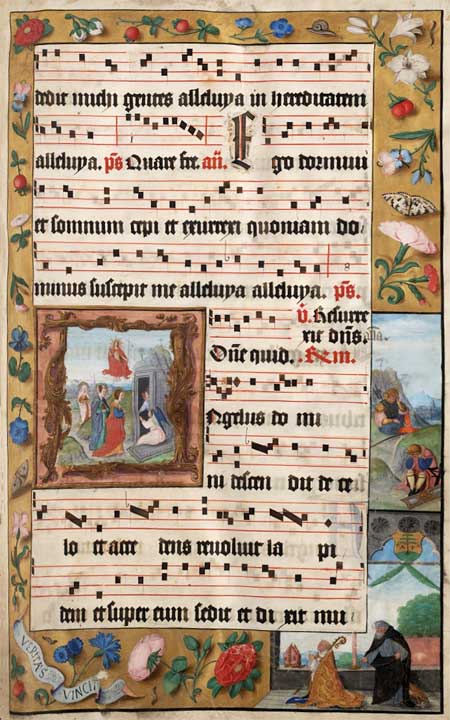 dedit michi gentes alleluya in hereditatem
alleluya. ps Quare fre. an. Ego dormivi
et somnum cepi et exurrexi quoniam do
minus suscepit me alleluya alleluya. ps.
v. Resurre
xit dns. alla.
Dne quid. R m.
Angelus do mi
ni descen dit de ce
lo et acce dens revolvit la pi
dem et super eum sedit et di xit mu
VERITAS
VINCIT